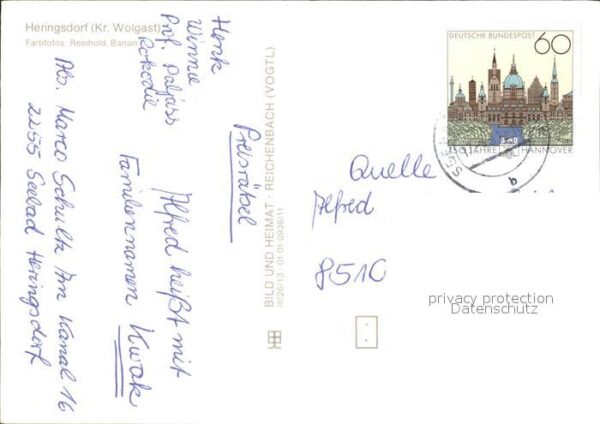 Heringsdorf (Kr. Wolgast)
Farbfotos: Reinhold, Bansin
Abs. Marco Schultz Am Kanal 16
2255 Seebad Heringsdorf
Henk
Winnie
Prof. Paljass
Kokodie
Preisrätsel
Alfred heißt mit
Familiennamen Kwak
BILD UND HEIMAT · REICHENBACH (VOGTL)
III/26/13 01 01 0936/11
DEUTSCHE BUNDESPOST 60
750 JAHRE HANNOVER
Quelle
Alfred
8510
privacy protection
Datenschutz